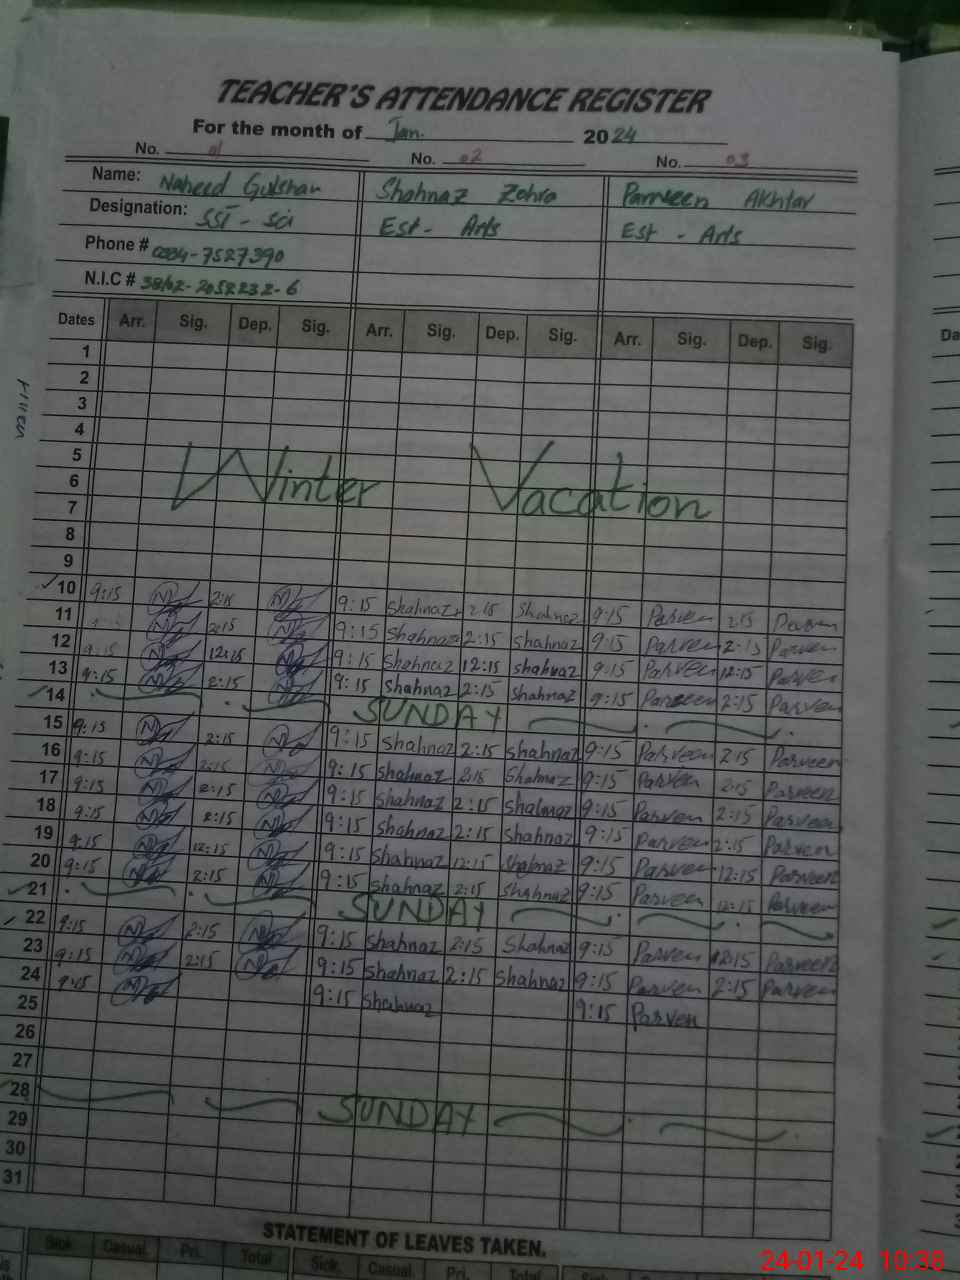 TEACHER'S ATTENDANCE REGISTER
For the month of Jan. 2024
No. 01 No. 02 No. 03
Name: Naheed Gulshan Shahnaz Zohra Parveen Akhtar
Designation: SST - Sci Est - Arts Est - Arts
Phone #
N.I.C #
Dates Arr. Sig. Dep. Sig. Arr. Sig. Dep. Sig. Arr. Sig. Dep. Sig.
1
2
3
4
5
6
7
Winter Vacation
8
9
10 9:15 2:15 9:15 Shahnaz 2:15 Shahnaz 9:15 Parveen 2:15 Parveen
11 2:15 9:15 Shahnaz 2:15 Shahnaz 9:15 Parveen 2:15 Parveen
12 9:15 12:15 9:15 Shahnaz 12:15 Shahnaz 9:15 Parveen 12:15 Parveen
13 9:15 2:15 9:15 Shahnaz 2:15 Shahnaz 9:15 Parveen 2:15 Parveen
14 SUNDAY
15 9:15 2:15 9:15 Shahnaz 2:15 Shahnaz 9:15 Parveen 2:15 Parveen
16 9:15 2:15 9:15 Shahnaz 2:15 Shahnaz 9:15 Parveen 2:15 Parveen
17 9:15 2:15 9:15 Shahnaz 2:15 Shahnaz 9:15 Parveen 2:15 Parveen
18 9:15 2:15 9:15 Shahnaz 2:15 Shahnaz 9:15 Parveen 2:15 Parveen
19 9:15 12:15 9:15 Shahnaz 12:15 Shahnaz 9:15 Parveen 12:15 Parveen
20 9:15 2:15 9:15 Shahnaz 2:15 Shahnaz 9:15 Parveen 12:15 Parveen
21 SUNDAY
22 9:15 2:15 9:15 Shahnaz 2:15 Shahnaz 9:15 Parveen Parveen
23 9:15 2:15 9:15 Shahnaz 2:15 Shahnaz 9:15 Parveen 2:15 Parveen
24 9:15 9:15 Shahnaz 9:15 Parven
25
26
27
28 SUNDAY
29
30
31
STATEMENT OF LEAVES TAKEN.
Sick. Casual. Pri. Total Sick. Casual. Pri. Total Sick. Casual. Pri. Total
24-01-24 10:38